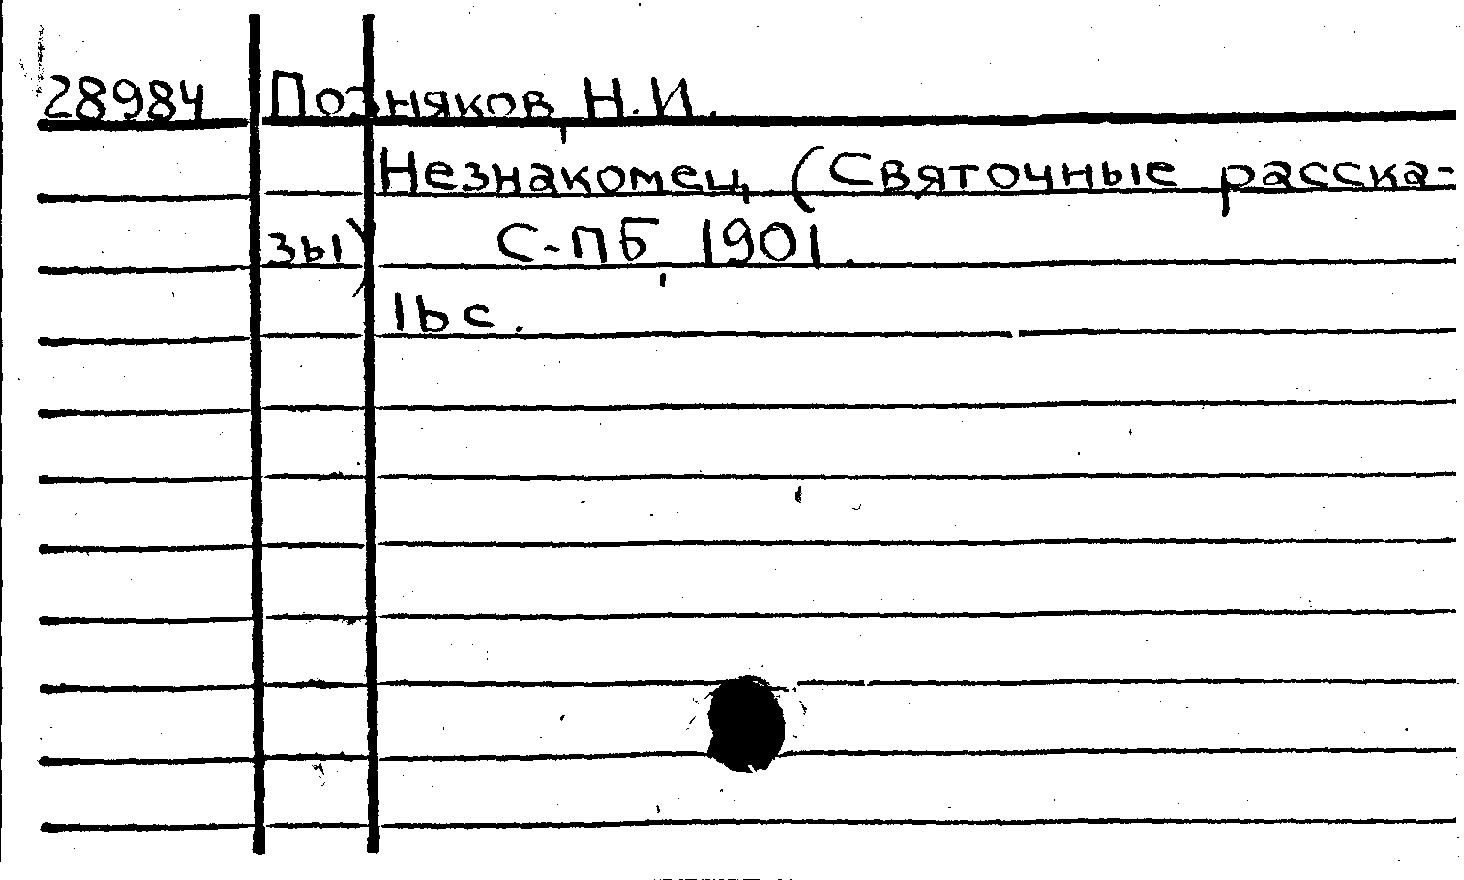 28984 Позняков, Н.И.
Незнакомец (Святочные расска-
зы) С-ПБ, 1901.
16 с.